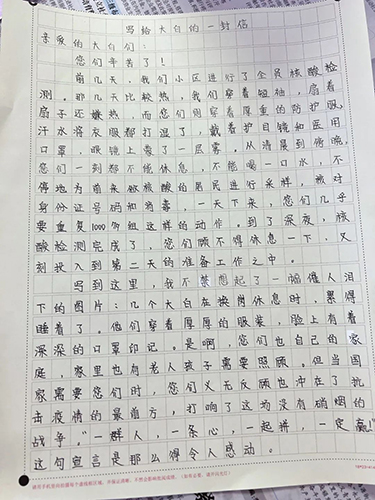 写给大白的一封信
亲爱的大白们：
您们辛苦了！
前几天，我们小区进行了全员核酸检
测。那几天比较热，我们穿着短袖，扇着
扇子还嫌热，而您们则穿着厚重的防护服，
汗水将衣服都打湿了，戴着护目镜和医用
口罩，眼镜上蒙了一层雾。从清晨到傍晚，
您们一刻都不能休息，不能喝一口水，不
停地为前来做核酸的居民进行采样，核对
身份证号码和消毒，一天下来，您们几乎
要重复1000多组这样的动作。到了深夜，核
酸检测完成了，您们顾不得休息一下，又
刻投入到第二天的准备工作之中。
写到这里，我不禁想起了一幅催人泪
下的图片：几个大白在换岗休息时，累得
睡着了。他们穿着厚厚的服装，脸上有着
深深的口罩印记。是啊，您们也自己的家
庭，家里也有老人孩子需要照顾。但当国
家需要您们时，您们义无反顾地冲在了抗
击疫情的最前方，打响了这场没有硝烟的
战争。“一群人，一条心，一起拼，一定赢！”
这句宣言是那么得令人感动。